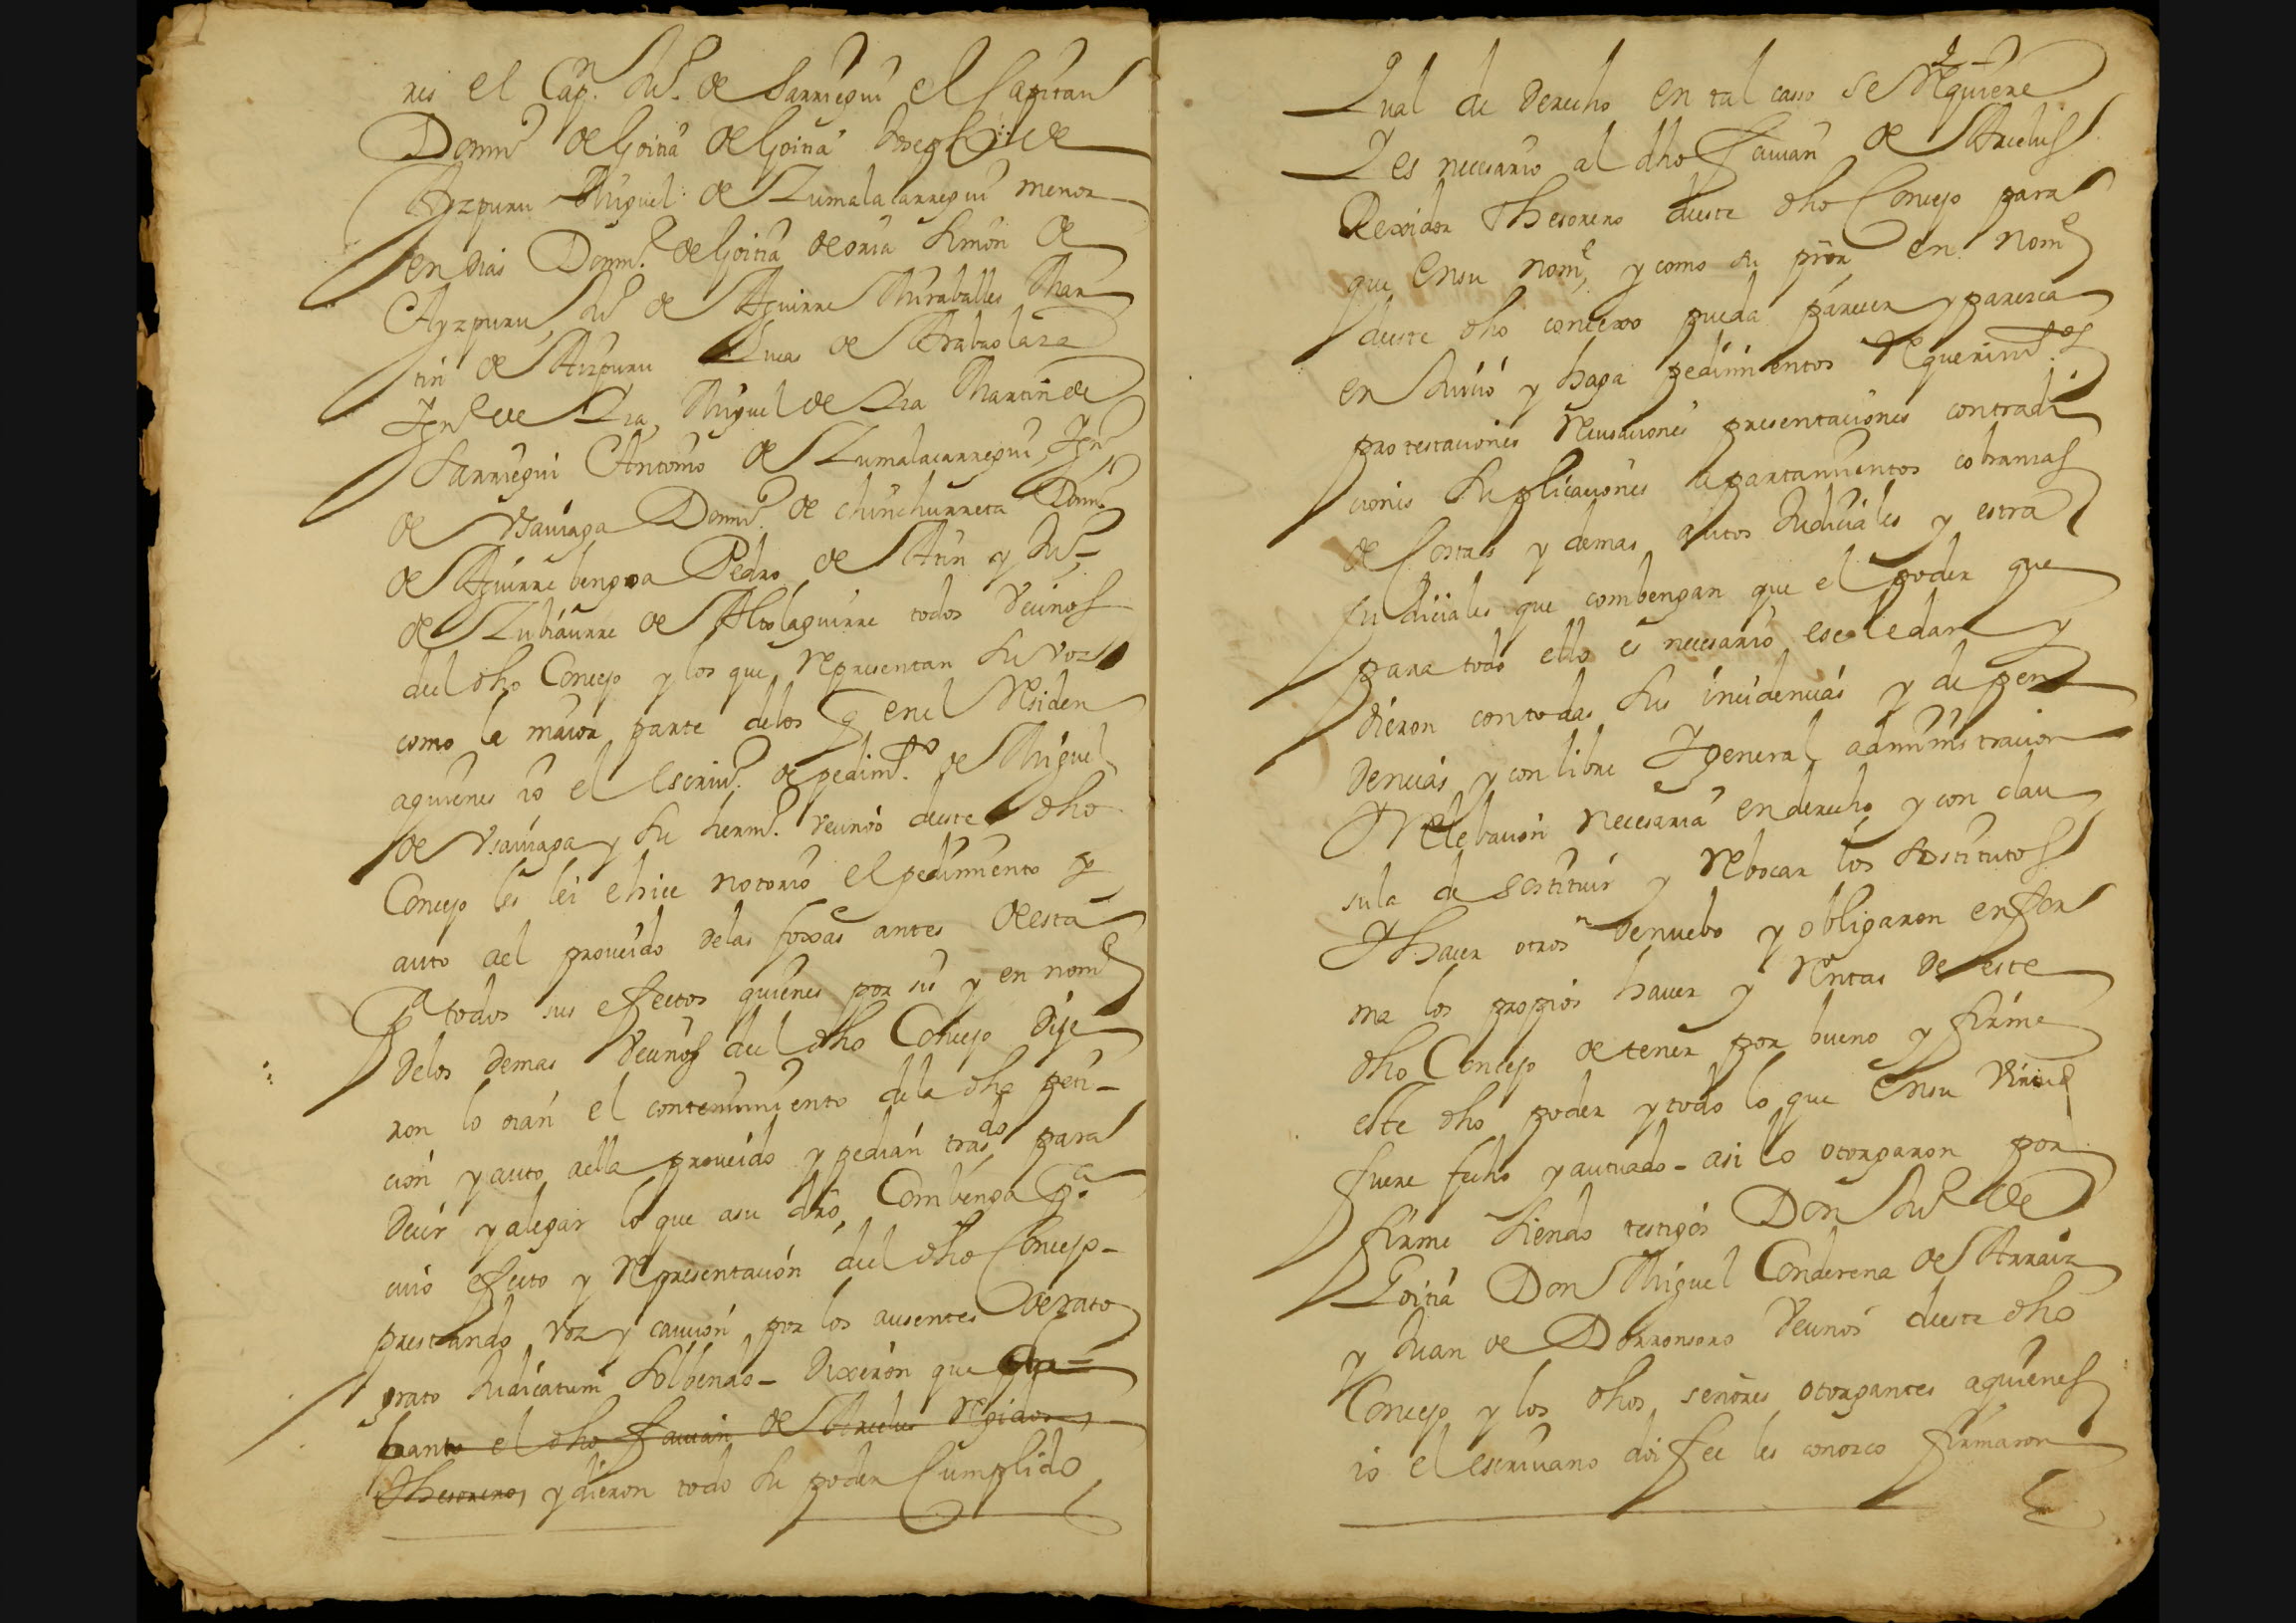 res el Cap.n Ju.o de Sarriegui el Capitan
Domin.o de Goitia de Goitia Joseph de
Ayzpuru Miguel de Zumalacarregui menor
en dias Domin.o de Goitia de oria Simon de
Ayzpuru, Ju.o de Aguirre Muraballes Mar
tin de Aizpuru Lucas de Arabaolaza
Ign.o de Lza, Miguel de Lza Martin de
Sarriegui Antonio de Zumalacarregui, Ign.o
de Vsaviaga Domin.o de chinchurreta Domin.o
de Aguirrebengoa Pedro de Atin y Ju.o
de Zubiaurre de Altolaguirre todos Vecinos
del dho Concejo y los que Representan su voz
como la maior parte delos q enel Residen
aquienes io el Escriv.o de pedim.to de Miguel
de Vsaviaga y su herm.o vecinos deste dho
Concejo les lei e hice notorio el pedimiento y
auto ael proveido delas foxas antes de esta
P.a todos sus efectos quienes por si y en nom.e
Delos Demas Vecinos del dho Concejo Dije
ron lo oian el contenimiento dela dha peti-
cion y auto aella proveido y pedian tras.do para
Decir y alegar lo que a su dro, Combenga P.a
cuio efecto y Representacion del dho Concejo-
prestando voz y caucion por los ausentes de rato
grato Judicatum Solbendo- Dixeron que
el dho Favian de Arcelus Regidor
Thesorero, y dieron todo su poder Cumplido
Qual de Derecho en tal casso se Requiere
Y es necesario al dho Favian de Arcelus
Rexidor Thesorero deste dho Concejo para
que Ensu nom.e, y como su pror en nom.e
deste dho concexo pueda parecer y paresca
en Juicio y haga pedimientos Requerim.tos
protestaciones Recusaciones presentaciones contradi
ciones Suplicaciones apartamientos cobranzas
de Costas y demas autos Judiciales y estra
Judiciales que combengan que el poder que
para todo ello es necesario ese le dan y
dieron contodas sus incidencias y depen
dencias y con libre Y general administracion
Y Relebacion Necesaria en derecho y con clau
sula de sostituir y Rebocar los sostitutos
Y hacer otros Denuebo y obligaron en for
ma los propios haver y Rentas De este
dho Concejo de tener por bueno y firme
este dho poder y todo lo que Ensu Virtud
fuere fecho y autuado- asi lo otorgaron por
firme siendo testigos Don Ju.o de
Goitia Don Miguel Conderena de Arraiz
y Juan de Dorronsoro Vecinos deste dho
Concejo y los dhos señores otorgantes aquienes
io el escrivano doi fee les conozco firmaron